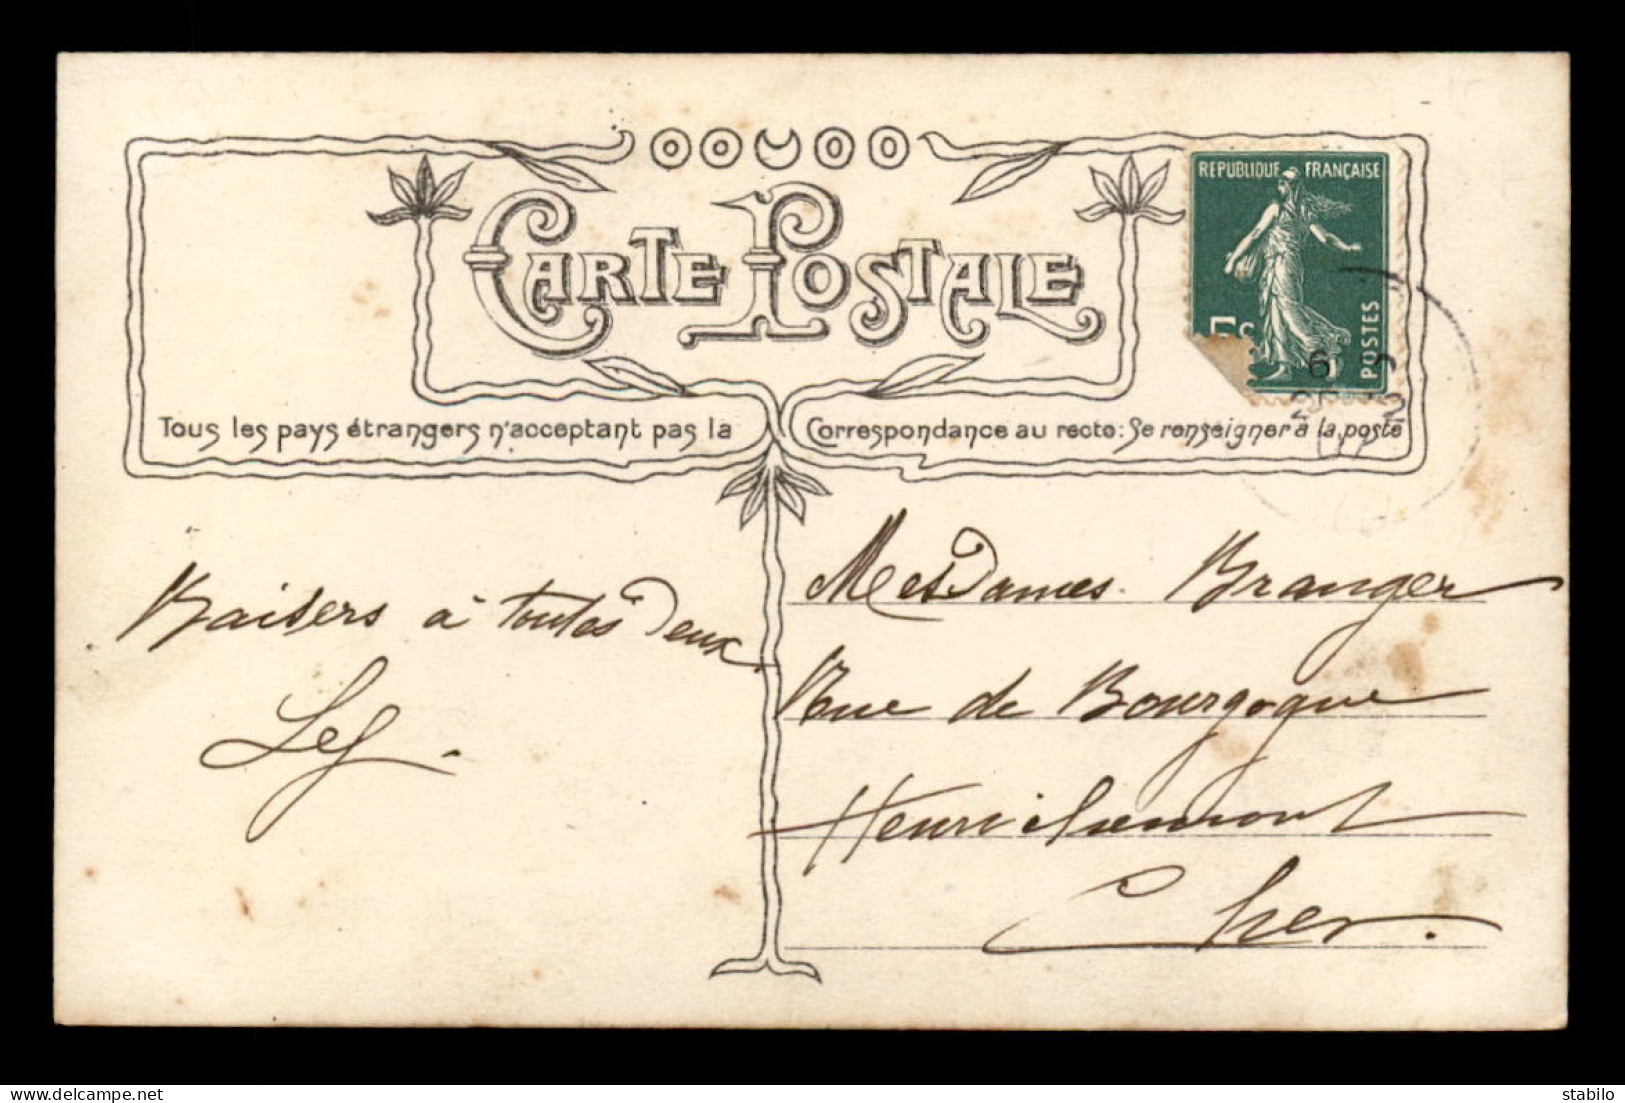 CARTE POSTALE
REPUBLIQUE FRANÇAISE
5c
POSTES
Tous les pays étrangers n'acceptant pas la Correspondance au recto: Se renseigner à la poste
Baisers à toutes deux.
Mesdames Branger
Rue de Bourgogne
Henrichemont
Cher.
delcampe.net
stabilo